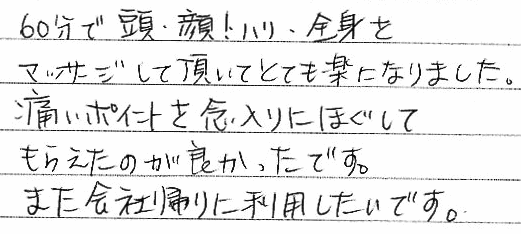 60分で頭・顔!ハリ・全身を
マッサージして頂いてとても楽になりました。
痛いポイントを念入りにほぐして
もらえたのが良かったです。
また会社帰りに利用したいです。